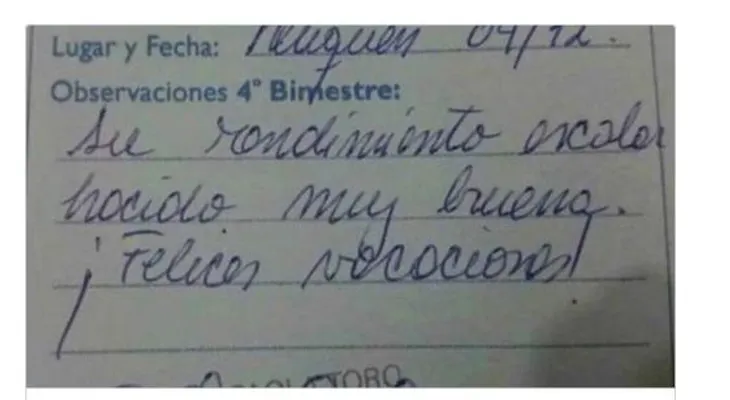 Lugar y Fecha: Neuquen 04/12.
Observaciones 4° Bimestre:
Su rondimiento escolar
hocido muy buena.
¡Felices vococionos!